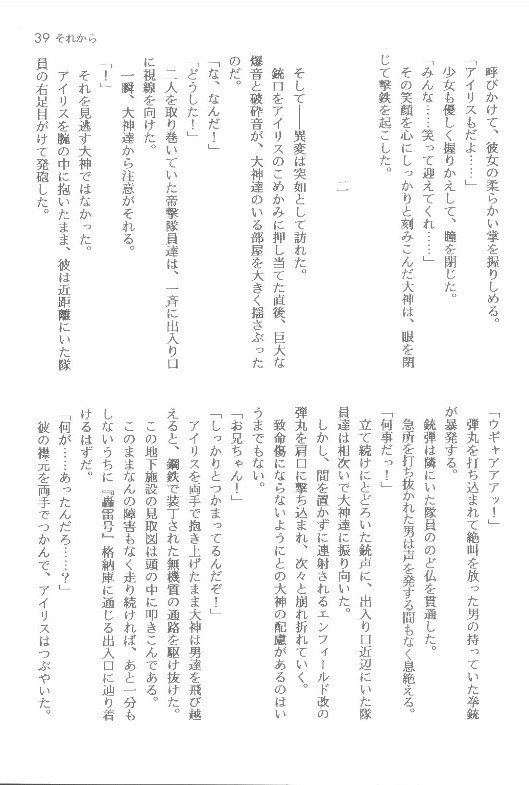 39 それから
呼びかけて、彼女の柔らかい掌を握りしめる。
「アイリスもだよ……」
少女も優しく握りかえして、瞳を閉じた。
「みんな……笑って迎えてくれ……」
その笑顔を心にしっかりと刻みこんだ大神は、眼を閉
じて撃鉄を起こした。
二
そして――異変は突如として訪れた。
銃口をアイリスのこめかみに押し当てた直後、巨大な
爆音と破砕音が、大神達のいる部屋を大きく揺さぶった
のだ。
「な、なんだ！」
「どうした！」
二人を取り巻いていた帝撃隊員達は、一斉に出入り口
に視線を向けた。
一瞬、大神達から注意がそれる。
「！」
それを見逃す大神ではなかった。
アイリスを腕の中に抱いたまま、彼は近距離にいた隊
員の右足目がけて発砲した。
「ウギャアアアッ！」
弾丸を打ち込まれて絶叫を放った男の持っていた拳銃
が暴発する。
銃弾は隣にいた隊員ののど仏を貫通した。
急所を打ち抜かれた男は声を発する間もなく息絶える。
「何事だっ！」
立て続けにとどろいた銃声に、出入り口近辺にいた隊
員達は相次いで大神達に振り向いた。
しかし、間を置かずに連射されるエンフィールド改の
弾丸を肩口に撃ち込まれ、次々と崩れ折れていく。
致命傷にならないようにとの大神の配慮があるのはい
うまでもない。
「お兄ちゃん！」
「しっかりとつかまってるんだぞ！」
アイリスを両手で抱き上げたまま大神は男達を飛び越
えると、鋼鉄で装丁された無機質の通路を駆け抜けた。
この地下施設の見取図は頭の中に叩きこんである。
このままなんの障害もなく走り続ければ、あと一分も
しないうちに『轟雷号』格納庫に通じる出入口に辿り着
けるはずだ。
「何が……あったんだろ……？」
彼の襟元を両手でつかんで、アイリスはつぶやいた。